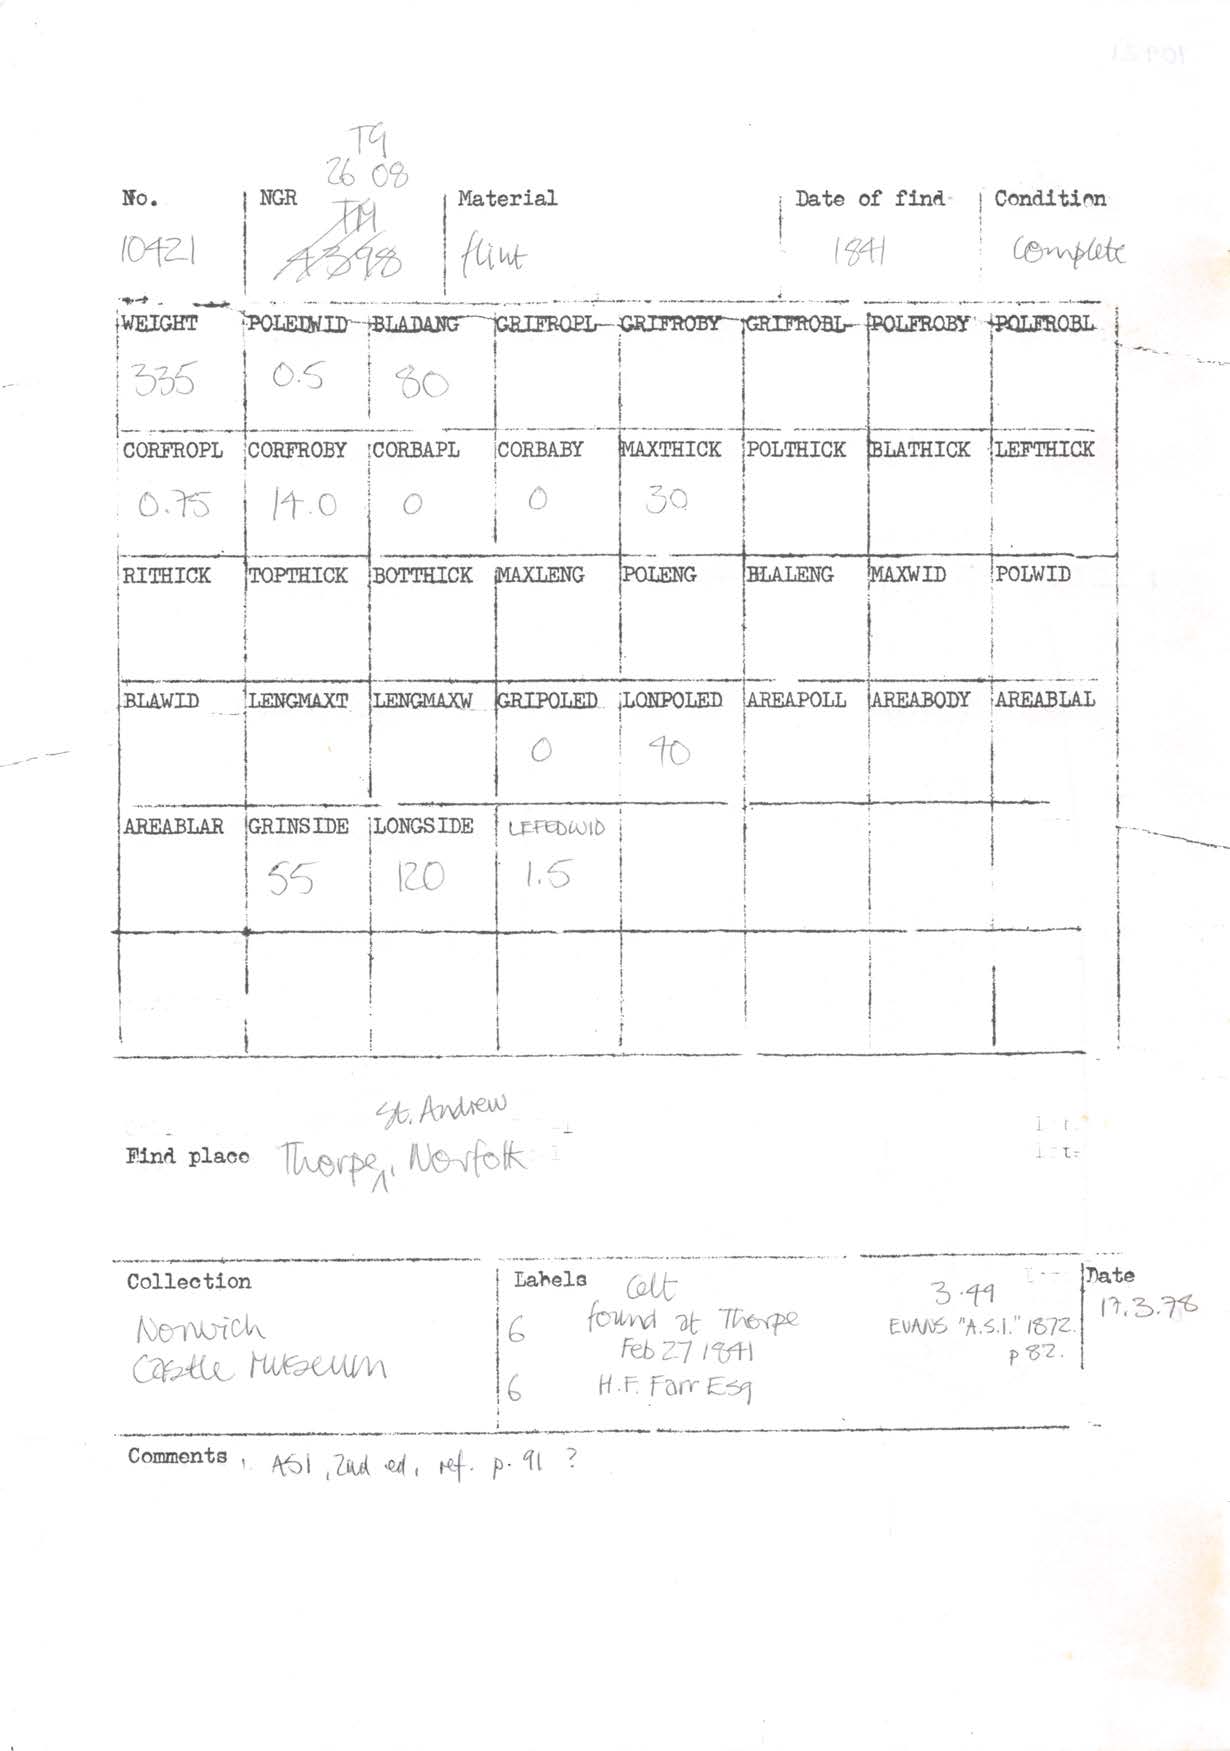 TG
26 08
No. NGR Material Date of find Condition
10421 flint 1841 complete
WEIGHT POLEDWID BLADANG GRIFROPL GRIFROBY GRIFROBL POLFROBY POLFROBL
335 0.5 80
CORFROPL CORFROBY CORBAPL CORBABY MAXTHICK POLTHICK BLATHICK LEFTHICK
0.75 14.0 0 0 30
RITHICK TOPTHICK BOTTHICK MAXLENG POLENG BLALENG MAXWID POLWID
BLAWID LENGMAXT LENGMAXW GRIPOLED LONPOLED AREAPOLL AREABODY AREABLAL
0 40
AREABLAR GRINSIDE LONGSIDE LEFEDWID
55 120 1.5
St. Andrew
Find place Thorpe, Norfolk
Collection Labels Celt 3.49 Date
Norwich 6 found at Thorpe EVANS "A.S.I." 1872. 17.3.78
Castle Museum Feb 27 1841 p 82.
6 H.F. Farr Esq
Comments ASI, 2nd ed, ref. p. 91 ?